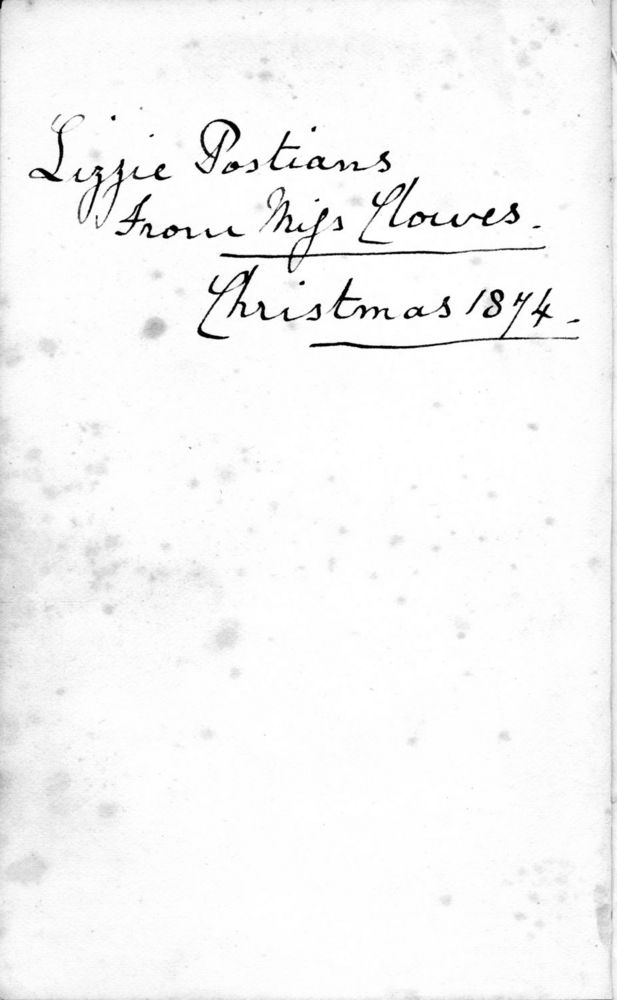 Lizzie Postians
From Miss Clowes.
Christmas 1874.